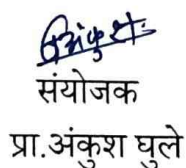 संयोजक
प्रा.अंकुश घुले